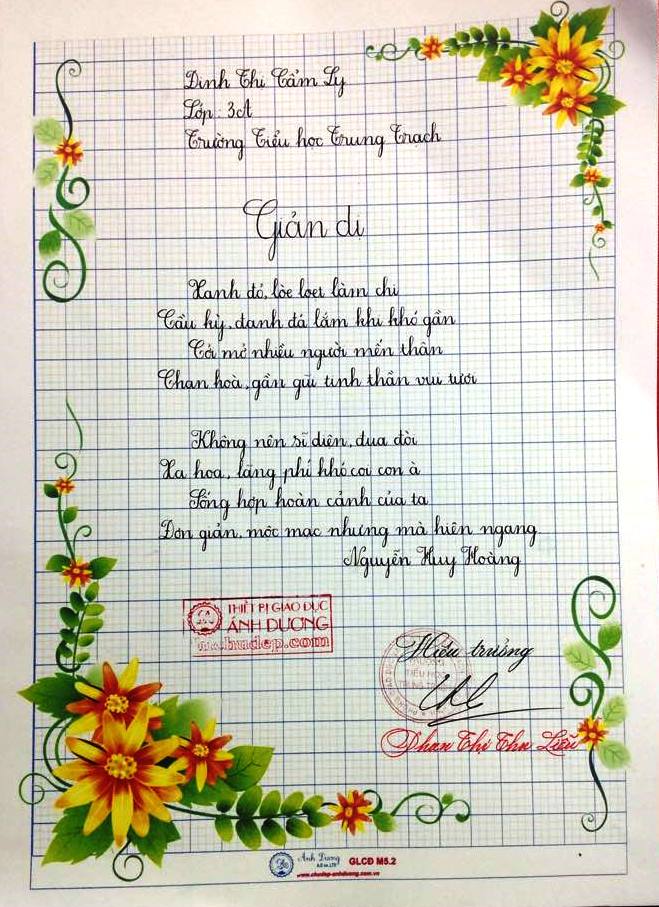 Đinh Thị Cẩm Ly
Lớp : 3A
Trường Tiểu học Trung Trạch
Giản dị
Xanh đỏ, lòe loẹt làm chi
Cầu kỳ, đanh đá lắm khi khó gần
Cởi mở nhiều người mến thân
Chan hoà, gần gũi tinh thần vui tươi
Không nên sĩ diện, đua đòi
Xa hoa, lãng phí khó coi con à
Sống hợp hoàn cảnh của ta
Đơn giản, mộc mạc nhưng mà hiên ngang
Nguyễn Huy Hoàng
THIẾT BỊ GIÁO DỤC
ÁNH DƯƠNG
chudep.com
Hiệu trưởng
TRƯỜNG
TIỂU HỌC
Phan Thị Thu Liễu
Ánh Dương
GLCĐ M5.2
www.chudep-anhduong.com.vn